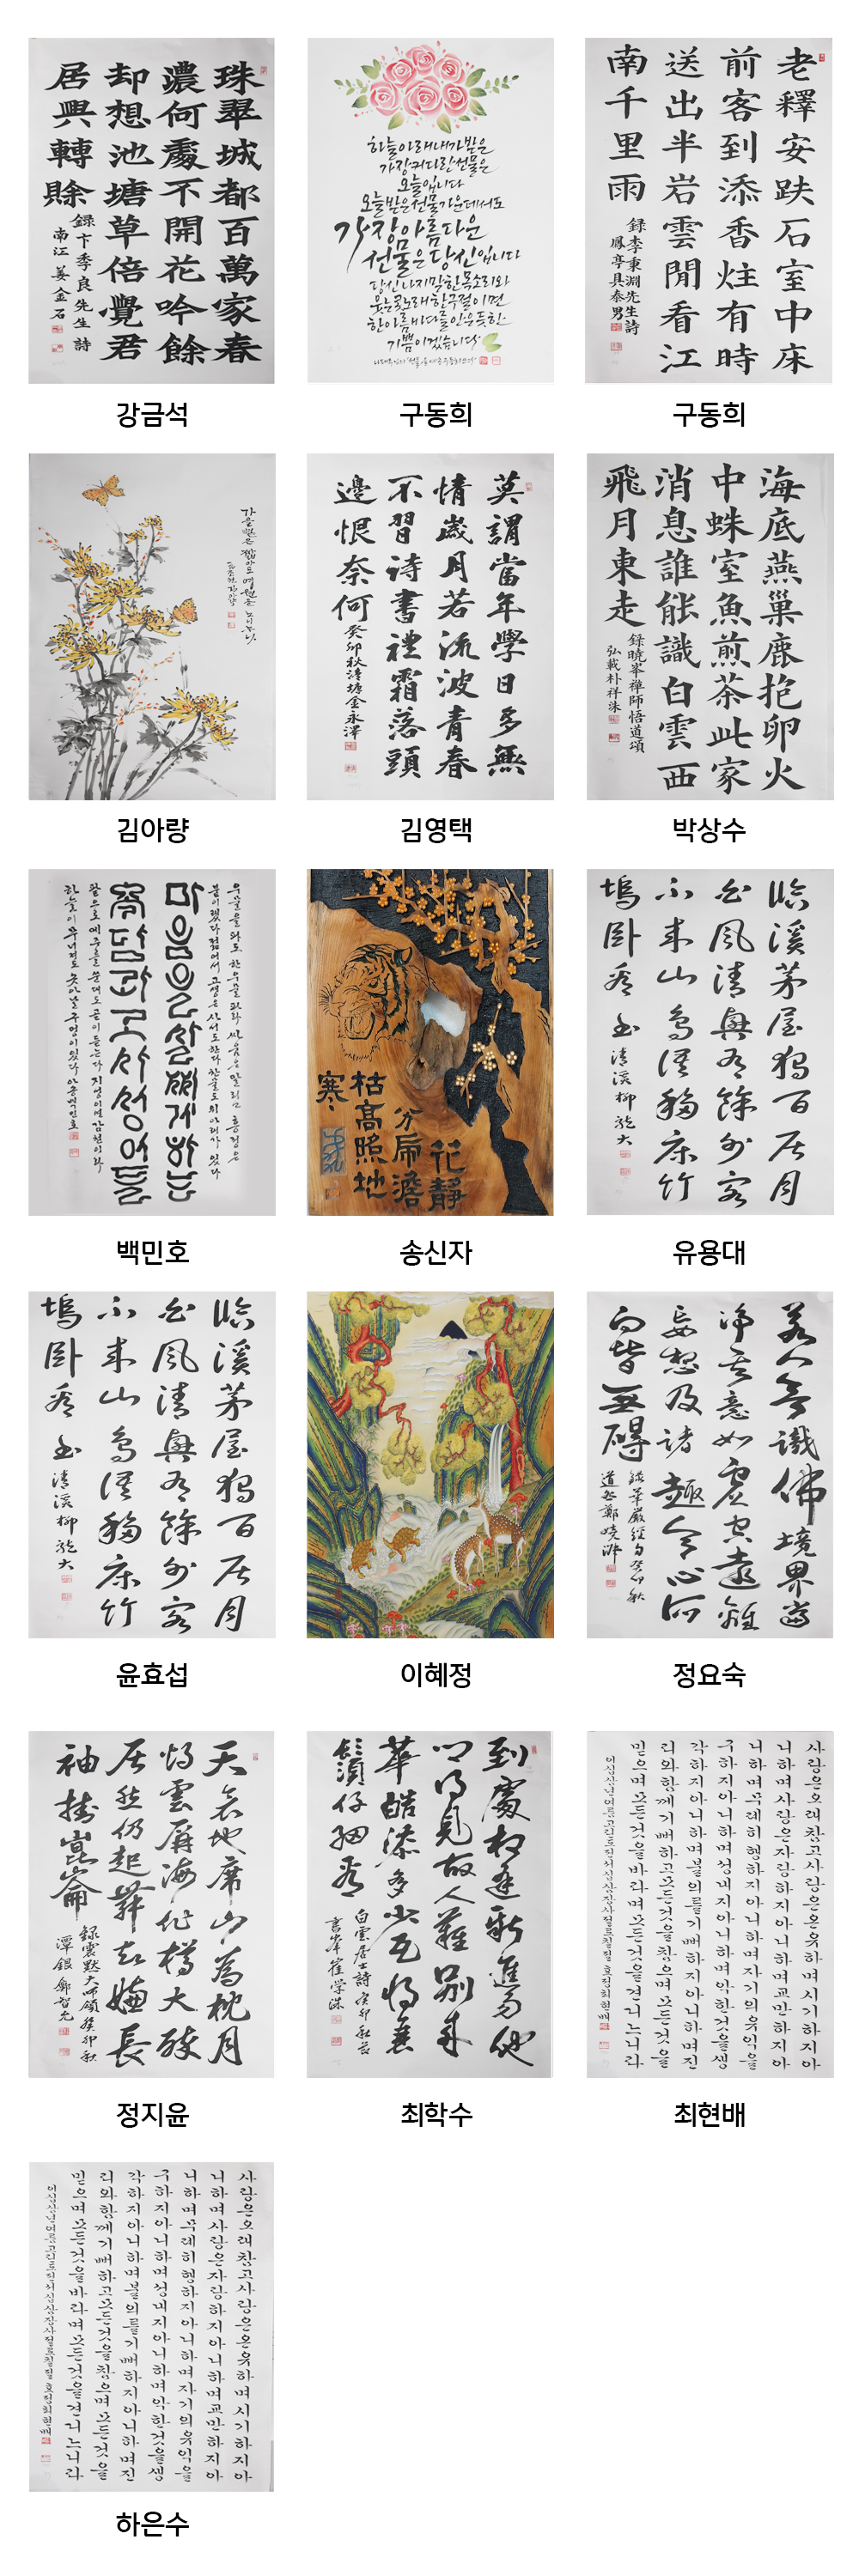 珠翠城都百萬家春
濃何處不開花吟餘
却想池塘草倍覺君
居興轉賖
録卞季良先生詩
南江 姜金石
강금석
하늘아래내가받은
가장커다란선물은
오늘입니다
오늘받은선물가운데서도
가장아름다운
선물은당신입니다
당신나지막한목소리와
웃는얼굴콧노래한구절이면
한아름바다를안은듯한
기쁨이겠습니다
구동희
老釋安趺石室中床
前客到添香炷有時
送出半岩雲閒看江
南千里雨
録李秉淵先生詩
鳳亭具泰男
구동희
김아량
莫謂當年學日多無
情歲月若流波青春
不習詩書禮霜落頭
邊恨奈何
癸卯秋清塘金永澤
김영택
海底燕巢鹿抱卵火
中蛛室魚煎茶此家
消息誰能識白雲西
飛月東走
録曉峯禪師悟道頌
弘載朴祥洙
박상수
우물을파도한우물만파라싸움은말리고흥정은
붙이랬다젊어서고생은사서도한다찬물도위아래가있다
마음을살찌게하는
속담과고사성어들
하늘이무너져도솟아날구멍이있다
백민호
花静
分扁澹
枯高照地
寒
송신자
臨溪茅屋獨自居月
白風清興有餘外客
不來山鳥語移床竹
塢卧看書
清溪柳龍大
유용대
臨溪茅屋獨自居月
白風清興有餘外客
不來山鳥語移床竹
塢卧看書
清溪柳龍大
윤효섭
이혜정
若人欲識佛境界當
淨其意如虛空遠離
妄想及諸趣令心所
向皆無碍
録華嚴經句癸卯秋
정요숙
天衾地席山為枕月
燭雲屏海作樽大醉
居然仍起舞却嫌長
袖掛崑崙
録震默大師頌癸卯秋
潭銀鄭智允
정지윤
到處相逢新進多他
鄉何見故人難別來
華皓添多少互情兼
鬚仔細看
白雲居士詩癸卯秋
言峯崔学洙
최학수
사랑은오래참고사랑은온유하며시기하지아
니하며사랑은자랑하지아니하며교만하지아
니하며무례히행하지아니하며자기의유익을
구하지아니하며성내지아니하며악한것을생
각하지아니하며불의를기뻐하지아니하며진
리와함께기뻐하고모든것을참으며모든것을
믿으며모든것을바라며모든것을견디느니라
최현배
사랑은오래참고사랑은온유하며시기하지아
니하며사랑은자랑하지아니하며교만하지아
니하며무례히행하지아니하며자기의유익을
구하지아니하며성내지아니하며악한것을생
각하지아니하며불의를기뻐하지아니하며진
리와함께기뻐하고모든것을참으며모든것을
믿으며모든것을바라며모든것을견디느니라
하은수